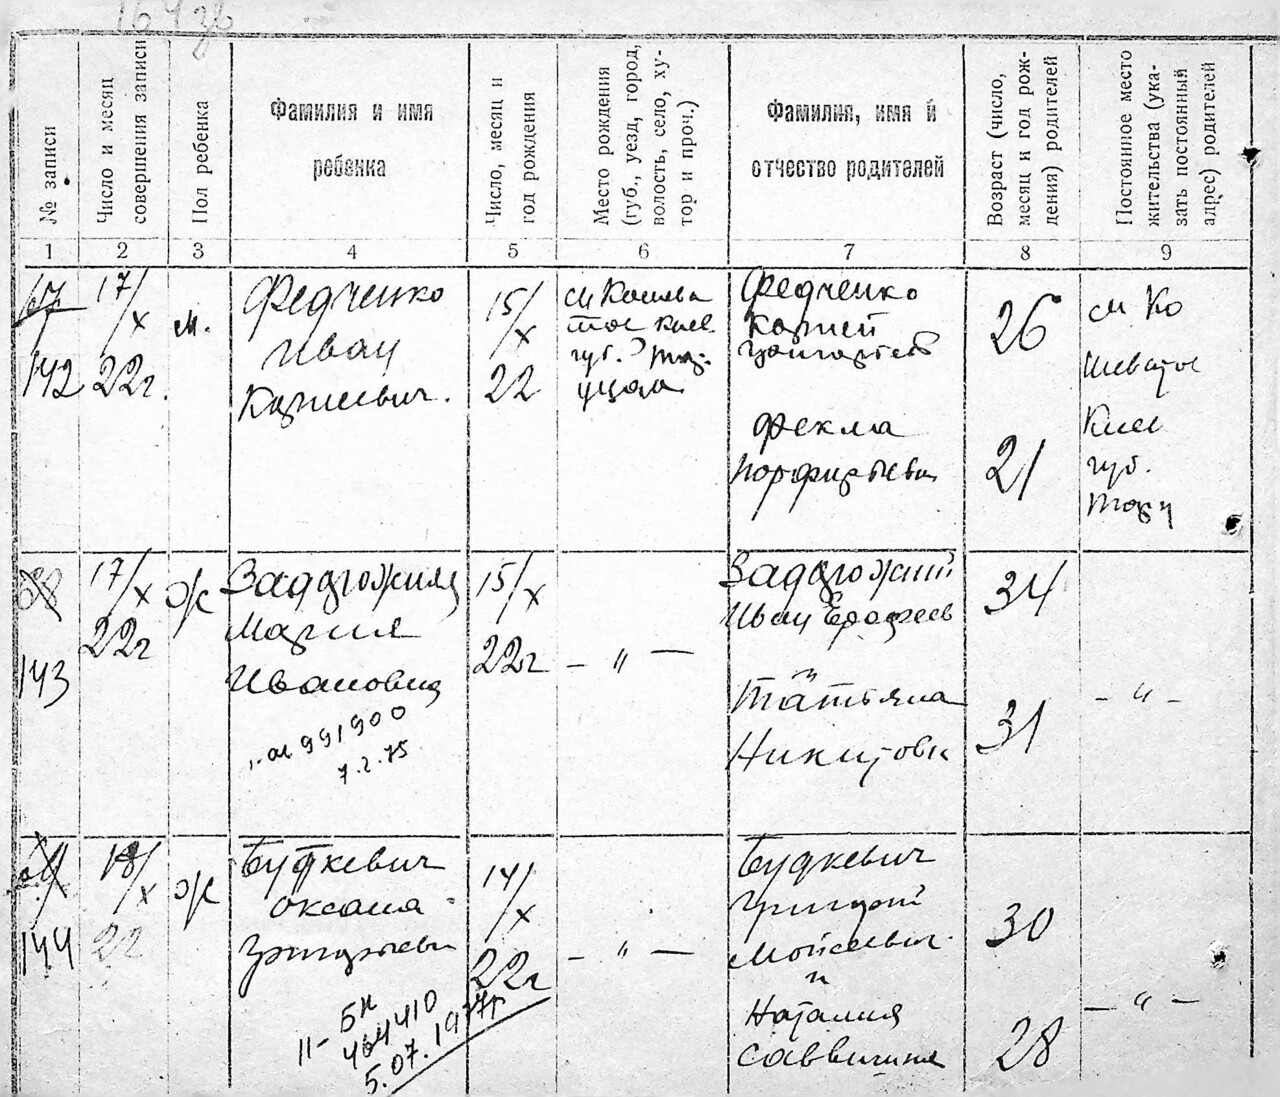 164 зв
№ записи
Число и месяц
совершения записи
Пол ребенка
Фамилия и имя
ребенка
Число, месяц и
год рождения
Место рождения
(губ., уезд, город,
волость, село, ху-
тор и проч.)
Фамилия, имя и
отчество родителей
Возраст (число,
месяц и год рож-
дения) родителей
Постоянное место
жительства (ука-
зать постоянный
адрес) родителей
1 2 3 4 5 6 7 8 9
67
142
17/X
22г.
м.
Федченко
Иван
Корнеевич.
15/X
22
м Кошева
тое Киев.
губ.
Федченко
Корней
Григорьев
26
Фекла
Порфирьевна
21
м Ко
шеватое
Киев
губ.
Тара
68
143
17/X
22г
ж
Задорожняя
Мария
Ивановна
991900
7.2.75
15/X
22г
— „ —
Задорожний
Иван Ерофеев
34
и
Татьяна
Никитовн
31
— „ —
144
18/X
22
ж
Будкевич
Оксана
Григорьевн
II-БК
464410
5.07.1977г
14/X
22г
— „ —
Будкевич
Григорий
Мойсеевич
30
и
Наталия
Саввишна
28
— „ —